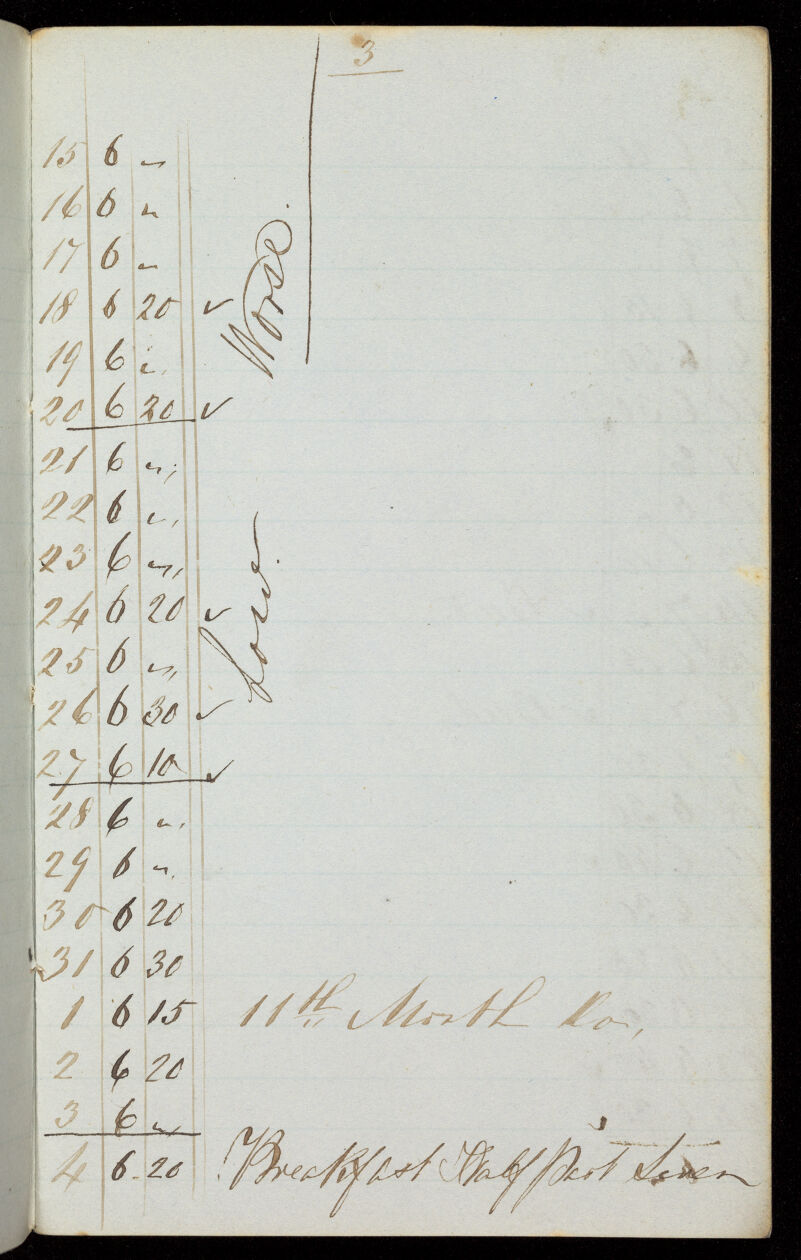 3
15 6 "
16 6 "
17 6 "
18 6 20 ✓
19 6 "
20 6 20 ✓
Worse.
21 6 "
22 6 "
23 6 "
24 6 20 ✓
25 6 "
26 6 30 ✓
27 6 10 ✓
Low.
28 6 "
29 6 "
30 6 20
31 6 30
1 6 15 11th Month
2 6 20
3 6 "
4 6 20 Breakfast Half Past Seven